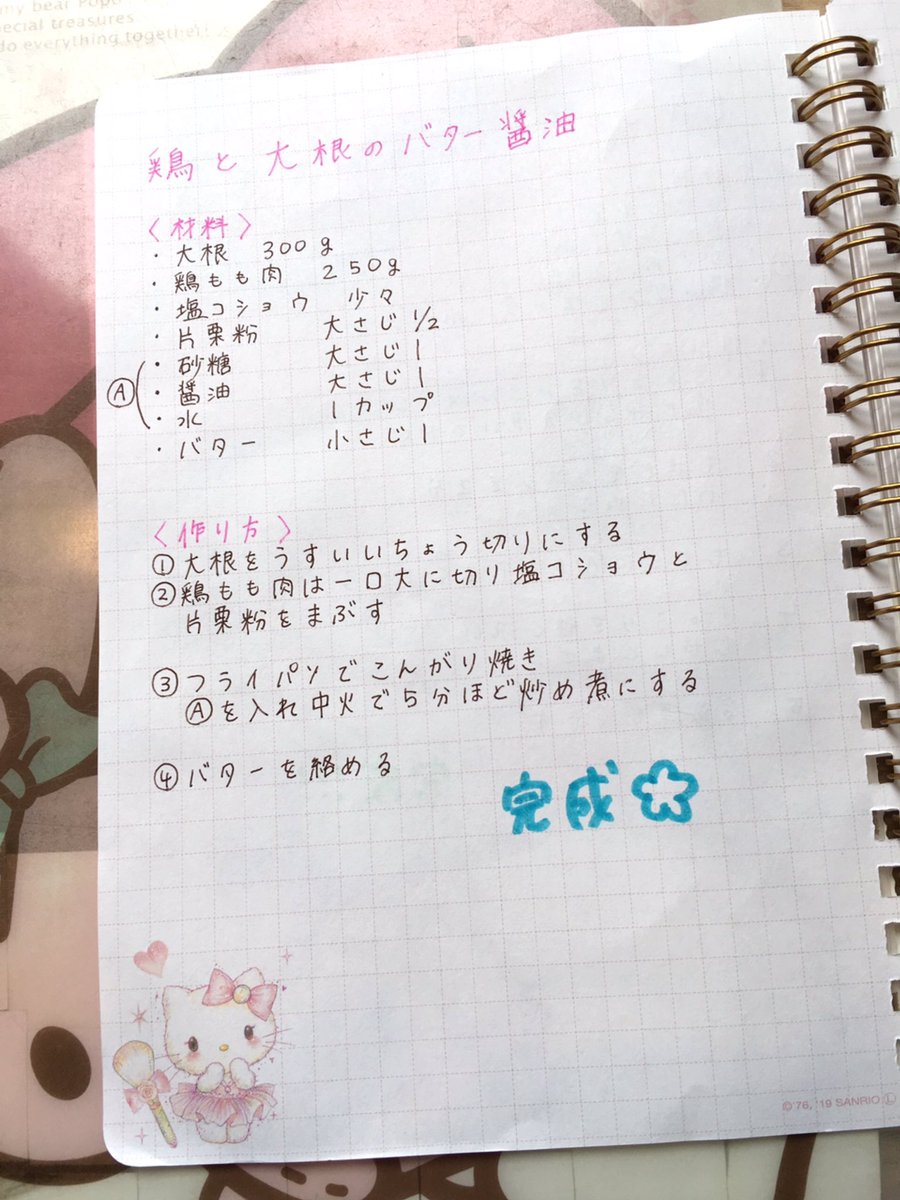 my bear Pop
special treasures
do everything together!
鶏と大根のバター醤油
〈材料〉
・大根 300g
・鶏もも肉 250g
・塩コショウ 少々
・片栗粉 大さじ1/2
・砂糖 大さじ1
Ⓐ ・醤油 大さじ1
・水 1カップ
・バター 小さじ1
〈作り方〉
①大根をうすいいちょう切りにする
②鶏もも肉は一口大に切り塩コショウと
片栗粉をまぶす
③フライパンでこんがり焼き
Ⓐを入れ中火で5分ほど炒め煮にする
④バターを絡める
完成
© 76, '19 SANRIO Ⓛ